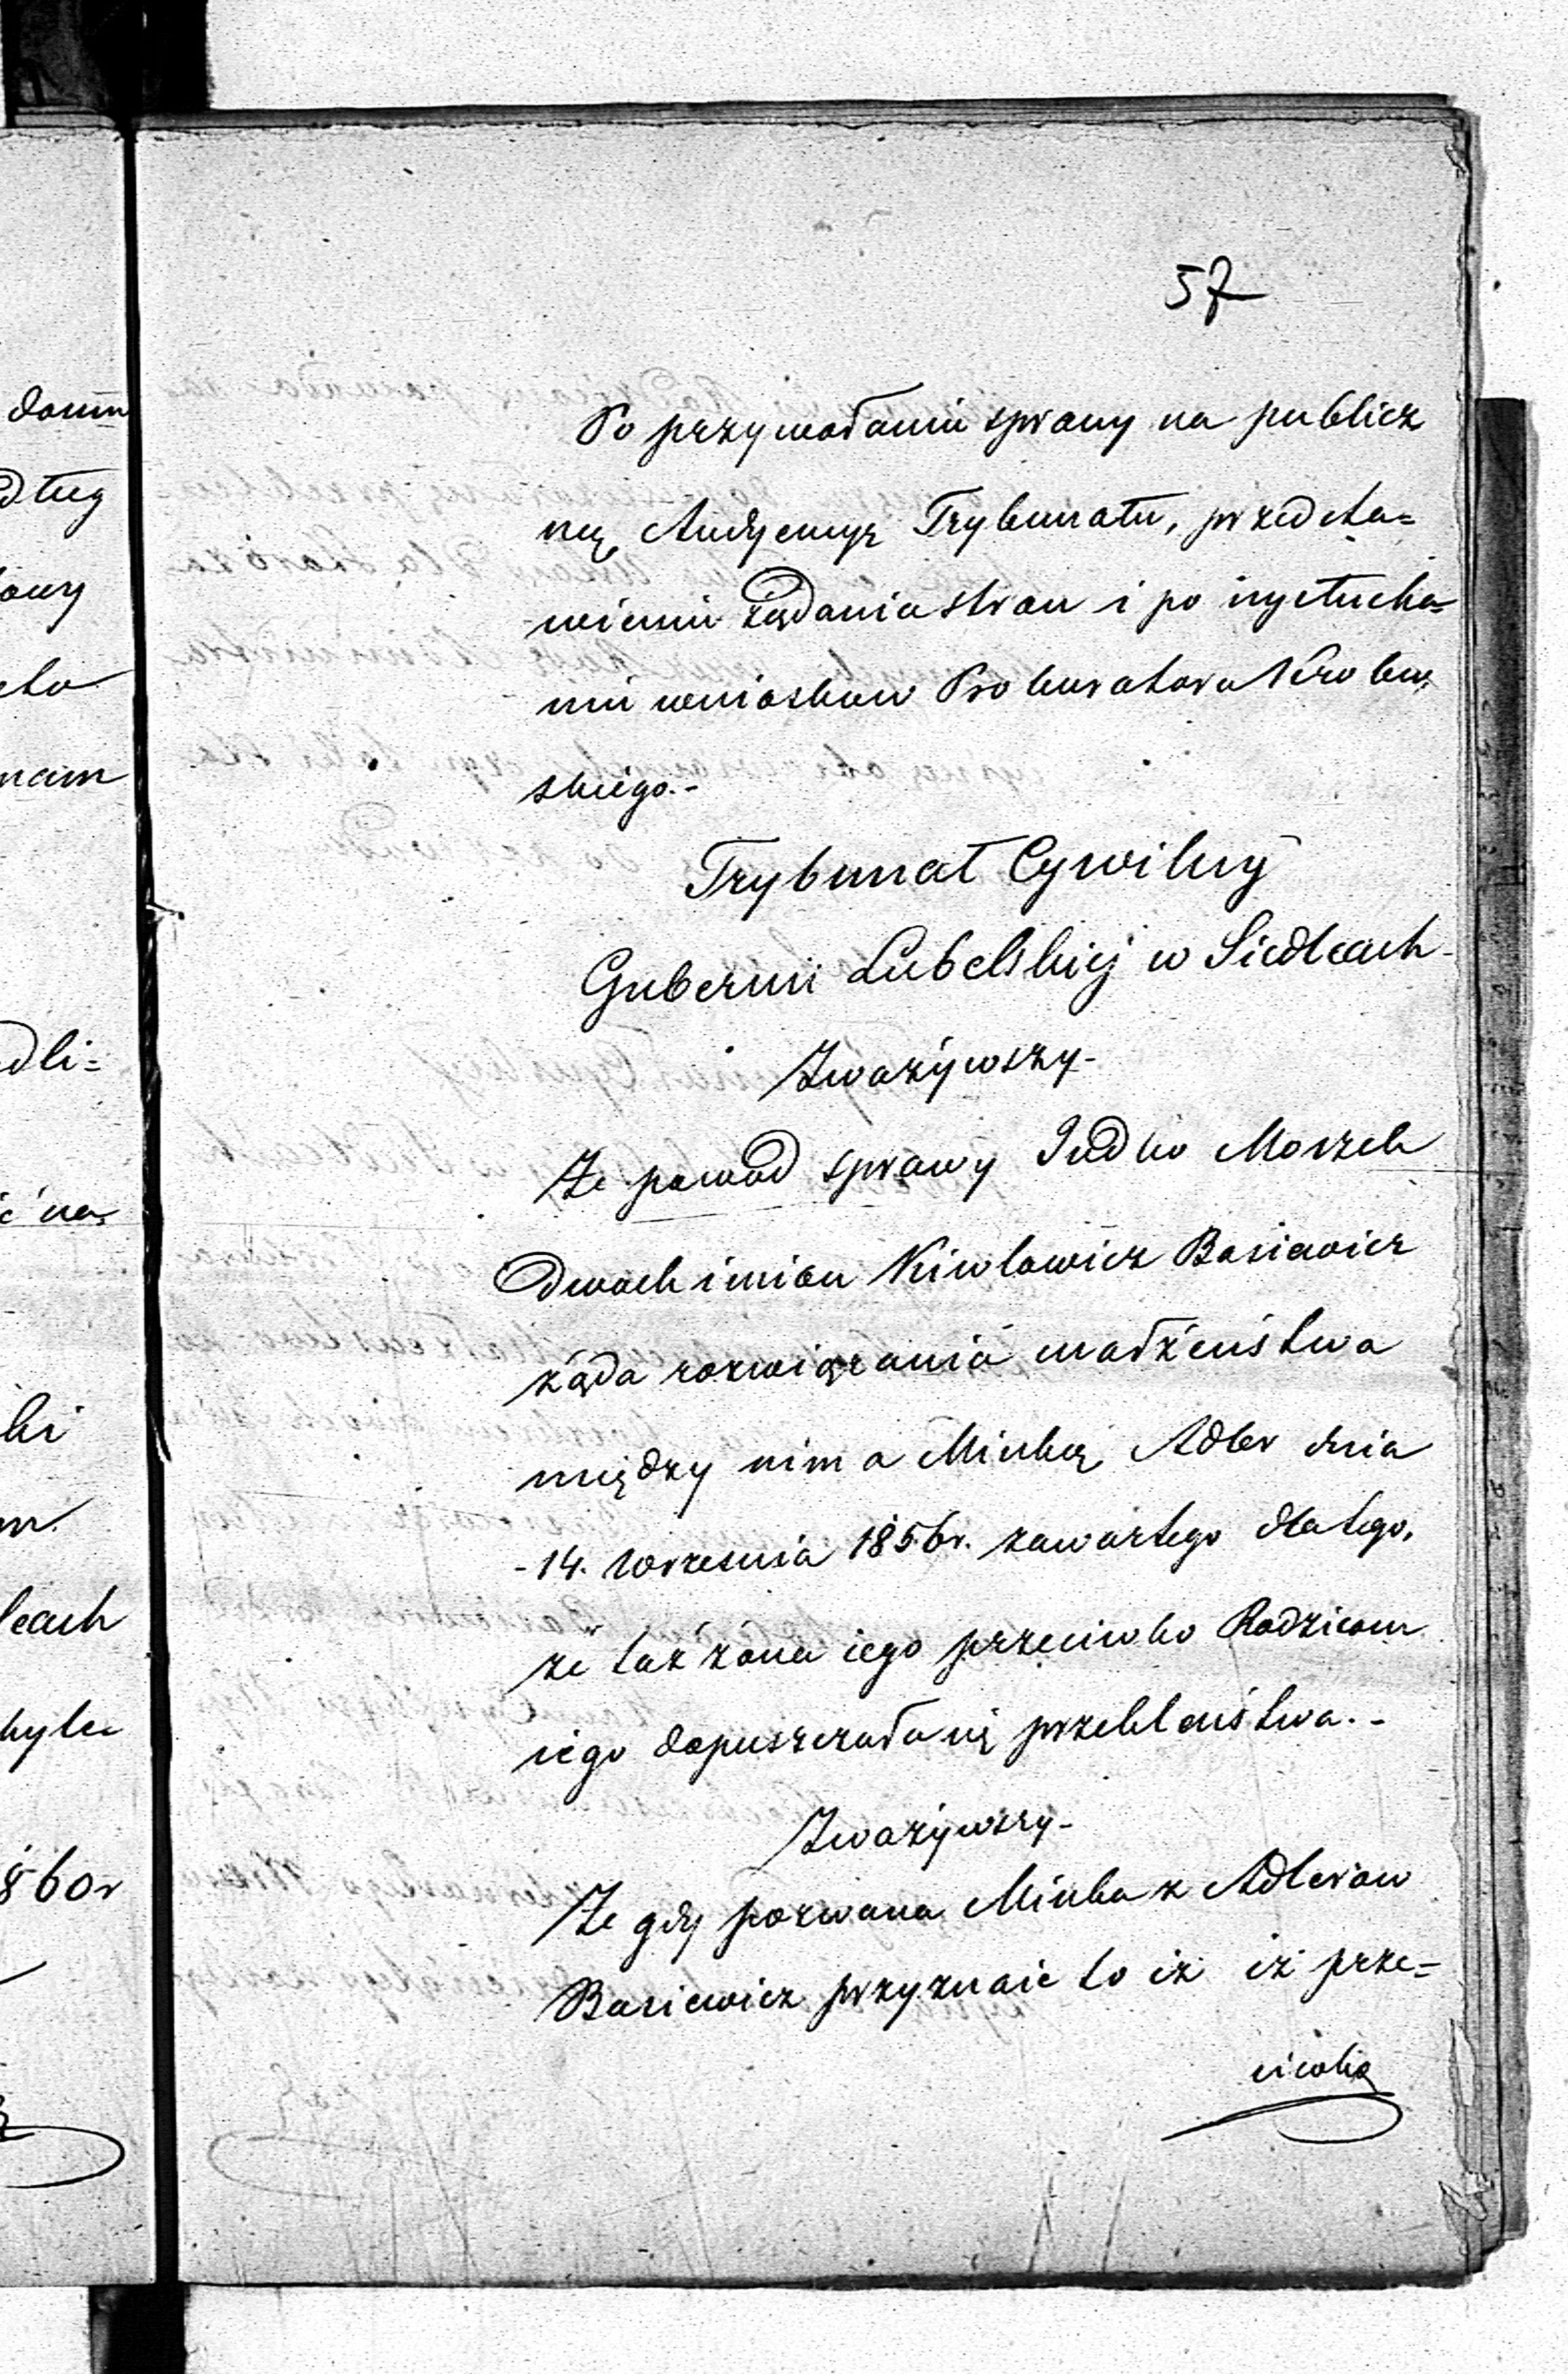 57
Po przywołaniu sprawy na publicz
ną Audyencyę Trybunału, przedsta=
wieniu żądania stron i po wysłucha=
niu wniosków Prokuratora Królew,
skiego.-
Trybunał Cywilny
Gubernii Lubelskiej w Siedlcach-
Zważywszy-
Że powód sprawy Judko Moszek
dwóch imion Kiwlowicz Basiewicz
żąda rozwiązania małżeństwa
między nim a Minką Adler dnia
-14. Września 1856r. zawartego dla tego,
że taż żona iego przeciwko Rodzicom
iego dopuszczała się przekleństwa.-
Zważywszy-
Że gdy pozwana Minka z Adlerów
Basiewicz przyznaie to iż iż prze=
ciwko
domu
dług
nam
dli=
ki
lcach
860r